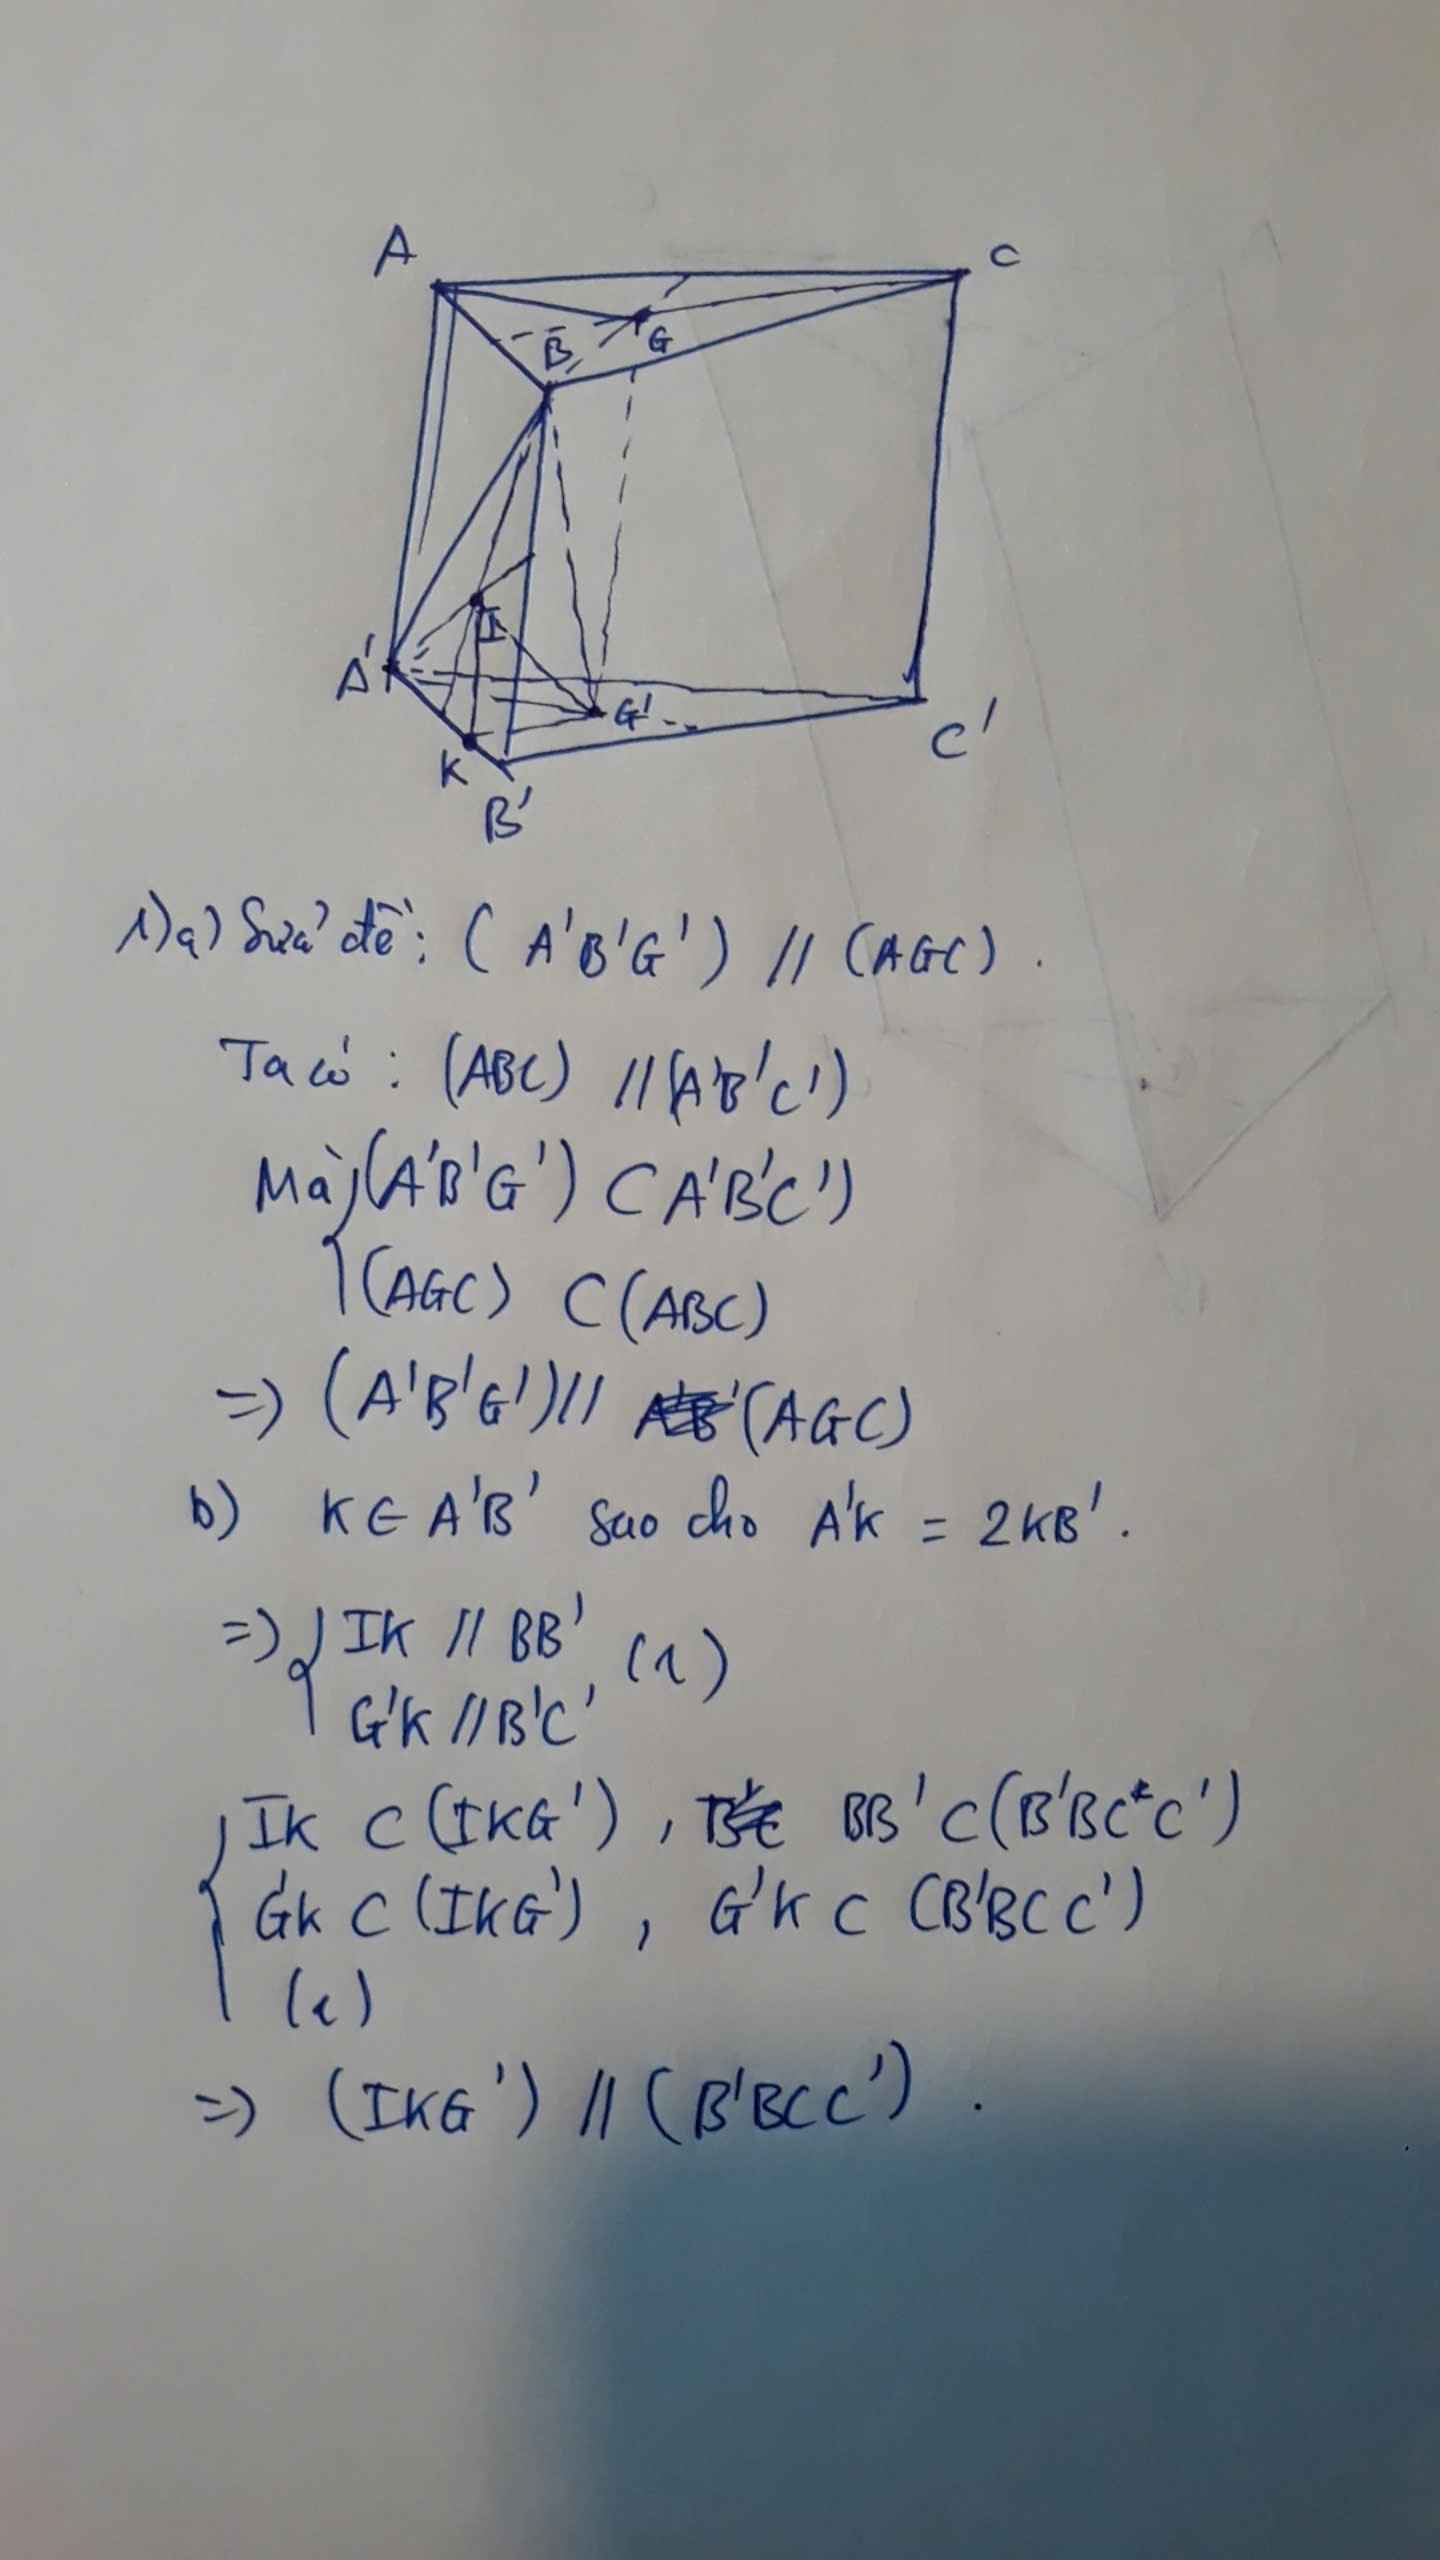 A
C
B
G
I
A'
G'
K
C'
B'
1)a) Sửa đề: (A'B'G') // (AGC).
Ta có: (ABC) // (A'B'C')
Mà (A'B'G') ⊂ A'B'C')
(AGC) ⊂ (ABC)
=> (A'B'G') // (AGC)
b) K ∈ A'B' sao cho A'K = 2KB'.
=> IK // BB' (1)
G'K // B'C'
IK ⊂ (IKG'), BB' ⊂ (B'BCC')
G'K ⊂ (IKG'), G'K ⊂ (B'BCC')
(1)
=> (IKG') // (B'BCC').